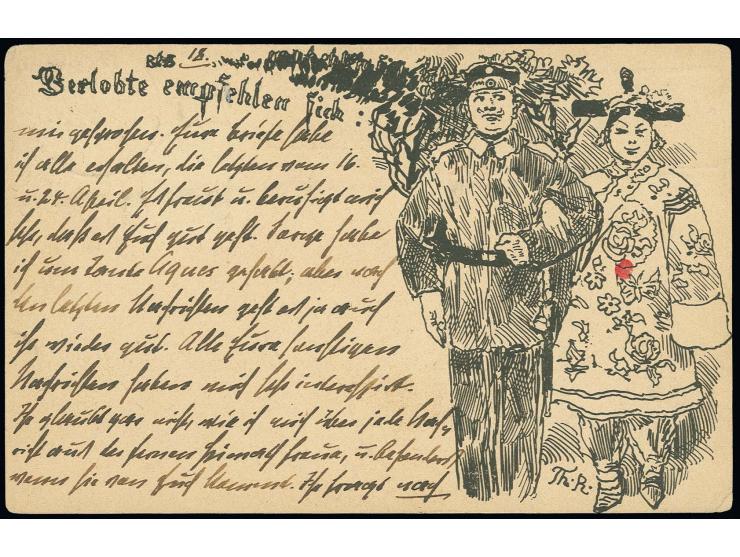 18.
Verlobte empfehlen sich:
mir gefroren. Eure Briefe habe
ich alle erhalten, die letzten vom 16.
u. 24. April. Es freut u. beruhigt mich
sehr, daß es Euch gut geht. Sorge habe
ich um Tante Agnes gehabt, aber nach
den letzten Nachrichten geht es ja auch
ihr wieder gut. Alle Eure sonstigen
Nachrichten haben mich sehr interessirt.
Ihr glaubt gar nicht, wie ich mich über jede Nach-
richt aus der fernen Heimath freue, u. besonders
wenn sie von Euch kommt. Ihr fragt nach
Th. R.